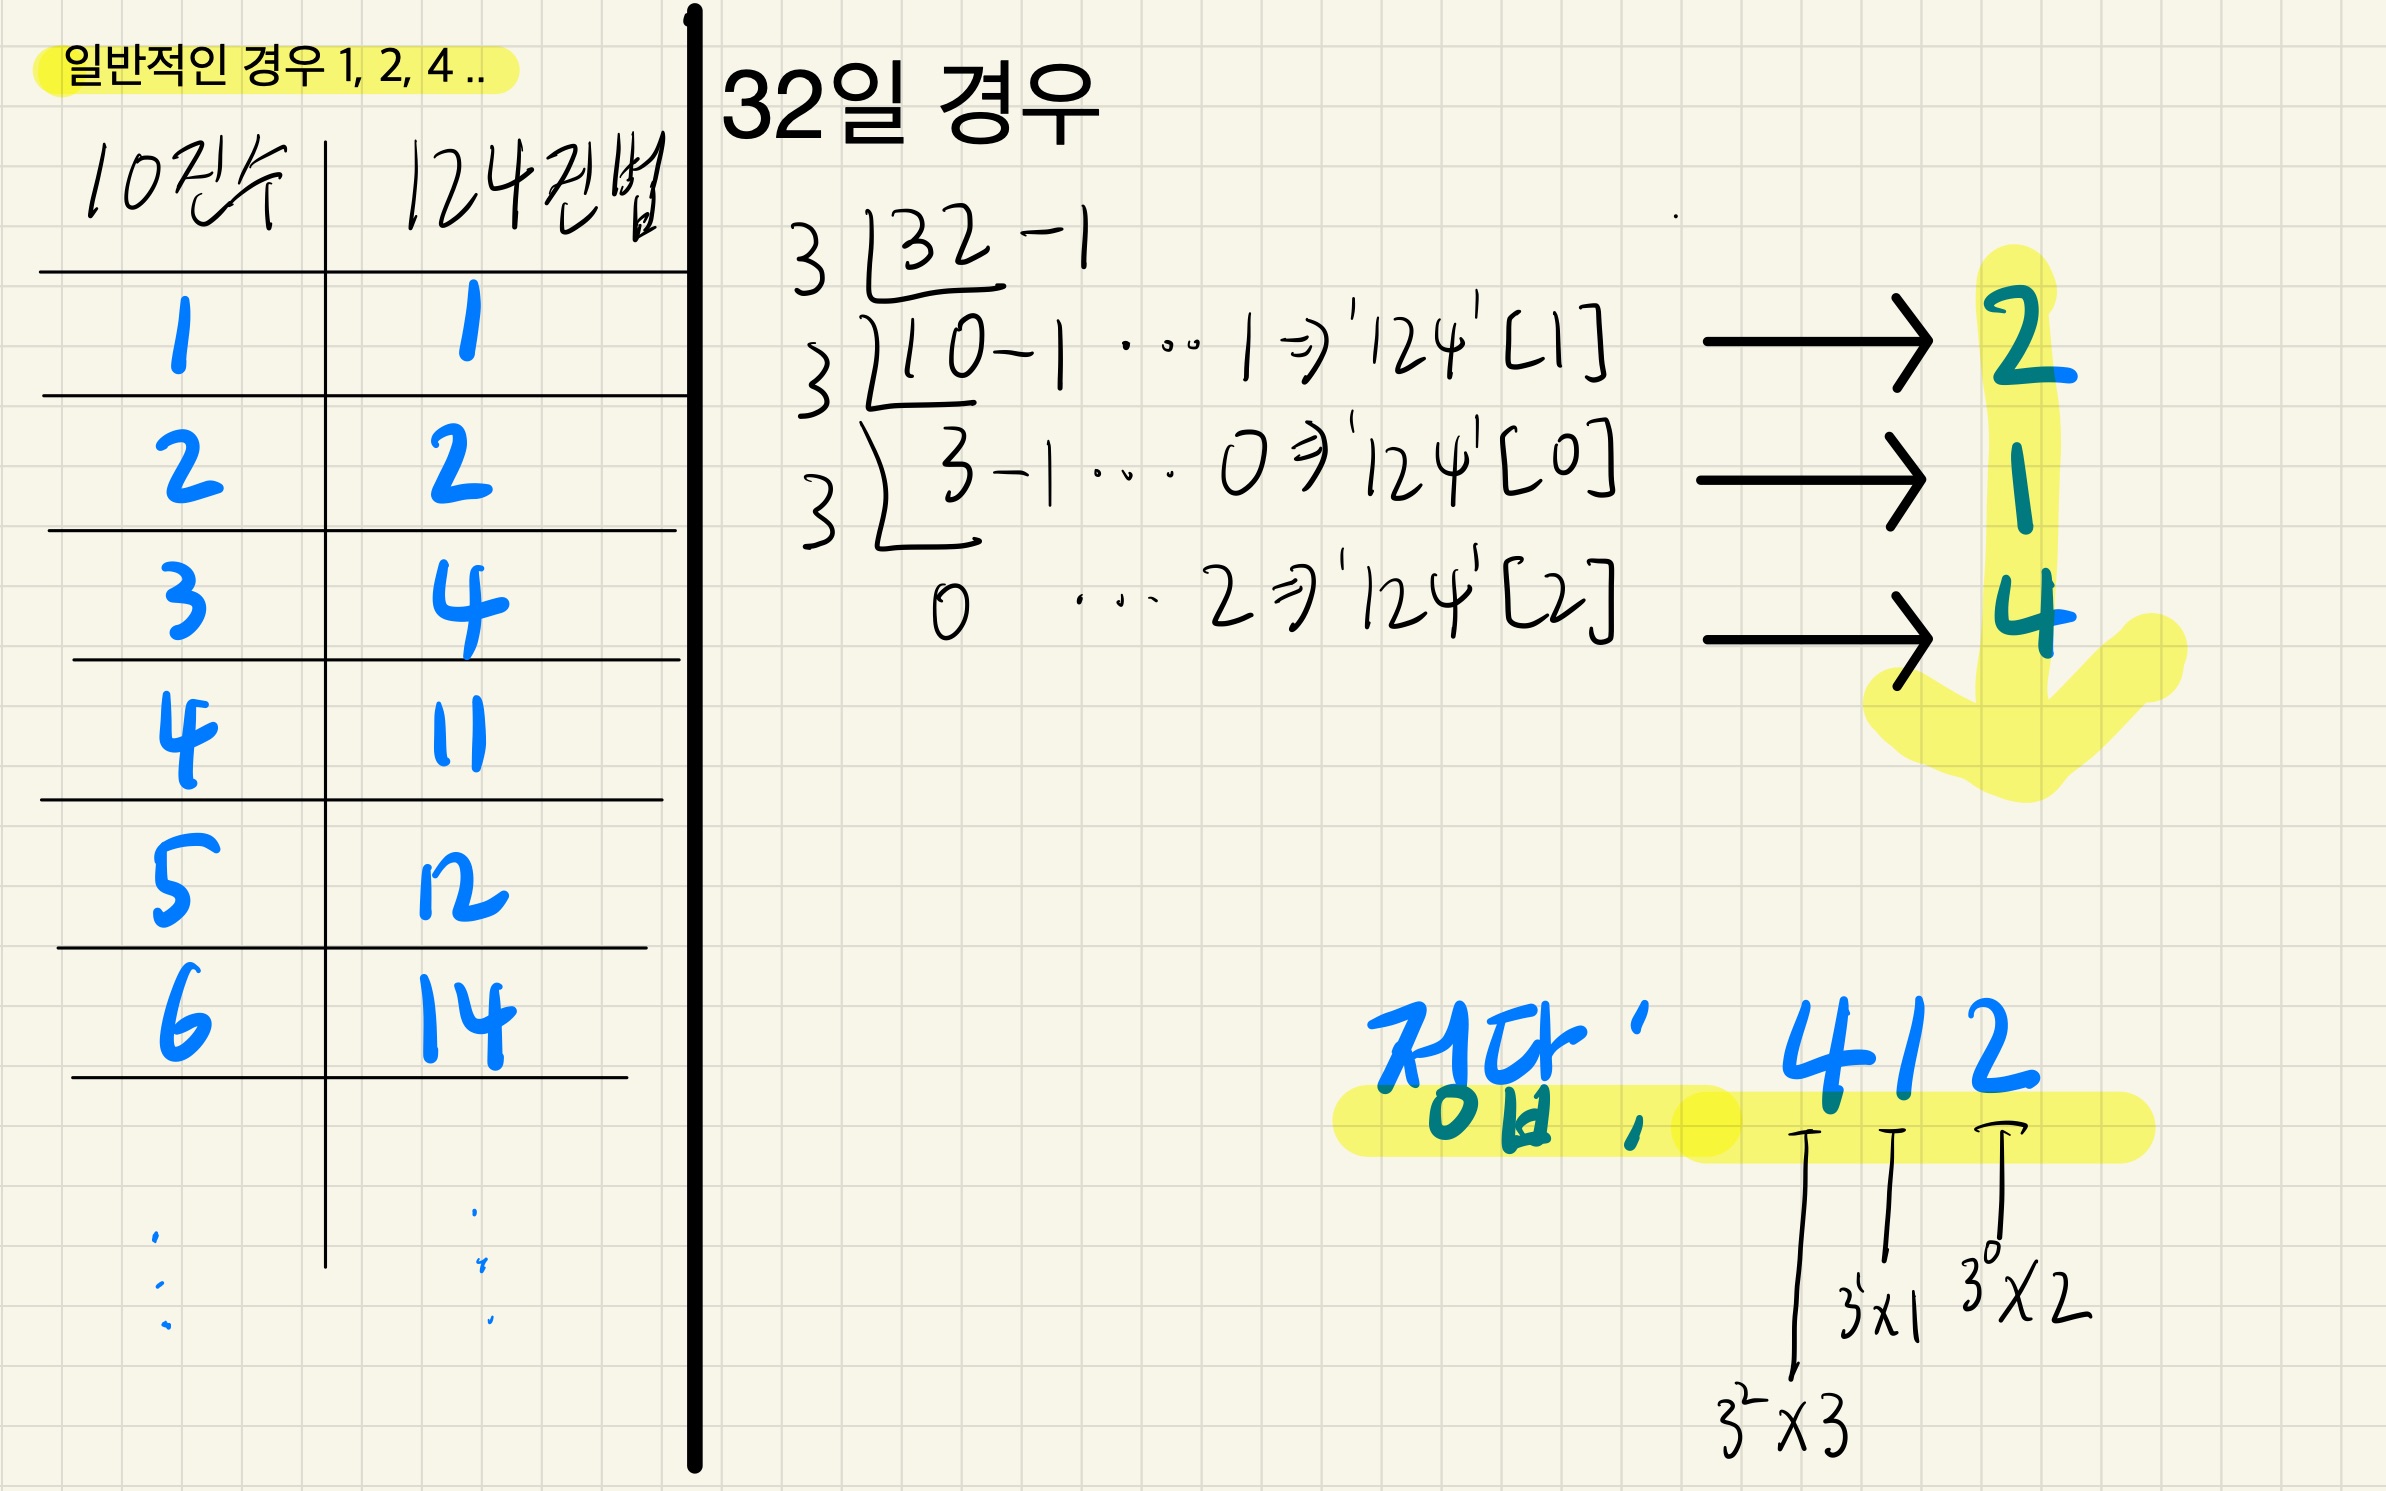 일반적인 경우 1, 2, 4 ..
10진수 124진법
1 1
2 2
3 4
4 11
5 12
6 14
32일 경우
3 32 -1
3 10 -1 ... 1 ⇒ '124' [1] → 2
3 3 -1 ... 0 ⇒ '124' [0] → 1
0 ... 2 ⇒ '124' [2] → 4
: 412
3⁰x2
3¹x1
3²x3